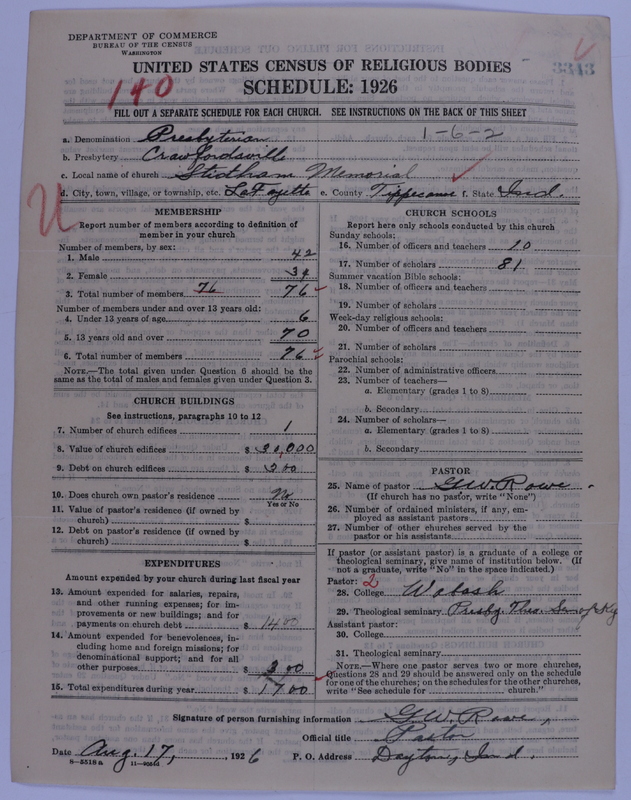 DEPARTMENT OF COMMERCE
BUREAU OF THE CENSUS
WASHINGTON
UNITED STATES CENSUS OF RELIGIOUS BODIES
3343
SCHEDULE: 1926
140
FILL OUT A SEPARATE SCHEDULE FOR EACH CHURCH. SEE INSTRUCTIONS ON THE BACK OF THIS SHEET
1-6-2
a. Denomination Presbyterian
b. Presbytery Crawfordsville
c. Local name of church Stidham Memorial
d. City, town, village, or township, etc. LaFayette e. County Tippecanoe f. State Ind.
MEMBERSHIP
Report number of members according to definition of
member in your church
Number of members, by sex:
1. Male 42
2. Female 34
3. Total number of members 76 76
Number of members under and over 13 years old:
4. Under 13 years of age 6
5. 13 years old and over 70
6. Total number of members 76
NOTE.—The total given under Question 6 should be the
same as the total of males and females given under Question 3.
CHURCH BUILDINGS
See instructions, paragraphs 10 to 12
7. Number of church edifices 1
8. Value of church edifices $ 30,000
9. Debt on church edifices $ 300
10. Does church own pastor's residence No
Yes or No
11. Value of pastor's residence (if owned by
church) $
12. Debt on pastor's residence (if owned by
church) $
EXPENDITURES
Amount expended by your church during last fiscal year
13. Amount expended for salaries, repairs,
and other running expenses; for im-
provements or new buildings; and for
payments on church debt $ 1400
14. Amount expended for benevolences, in-
cluding home and foreign missions; for
denominational support; and for all
other purposes $ 300
15. Total expenditures during year $ 1700
CHURCH SCHOOLS
Report here only schools conducted by this church
Sunday schools:
16. Number of officers and teachers 10
17. Number of scholars 81
Summer vacation Bible schools:
18. Number of officers and teachers
19. Number of scholars
Week-day religious schools:
20. Number of officers and teachers
21. Number of scholars
Parochial schools:
22. Number of administrative officers
23. Number of teachers—
a. Elementary (grades 1 to 8)
b. Secondary
24. Number of scholars—
a. Elementary (grades 1 to 8)
b. Secondary
PASTOR
25. Name of pastor G.W. Rowe
(If church has no pastor, write "None")
26. Number of ordained ministers, if any, em-
ployed as assistant pastors
27. Number of other churches served by the
pastor or his assistants
If pastor (or assistant pastor) is a graduate of a college or
theological seminary, give name of institution below. (If
not a graduate, write "No" in the space indicated.)
Pastor: 2
28. College Wabash
29. Theological seminary Presby. Theo. Sem of Ky
Assistant pastor:
30. College
31. Theological seminary
NOTE.—Where one pastor serves two or more churches,
Questions 28 and 29 should be answered only on the schedule
for one of the churches; on the schedules for the other churches,
write "See schedule for church."
Signature of person furnishing information G.W. Rowe,
Official title Pastor
Date Aug. 17, 1926 P. O. Address Dayton, Ind.
8—5518 a